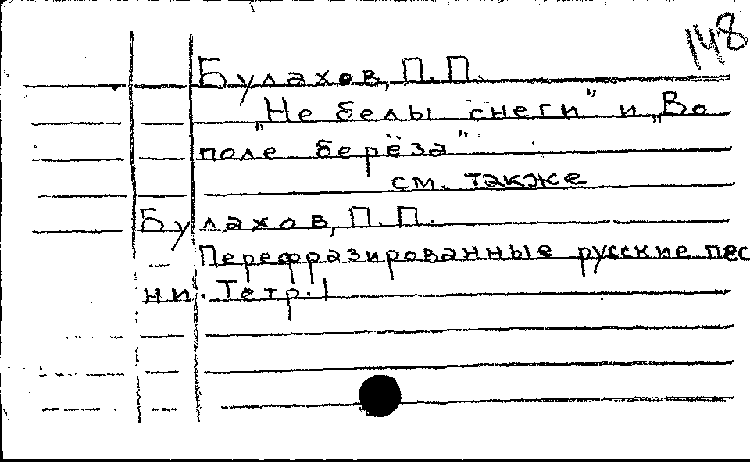 148
Булахов, П. П.
„Не белы снеги" и „Во
поле берёза"
см. также
Булахов, П. П.
Перефразированные русские пес
ни. Тетр. 1